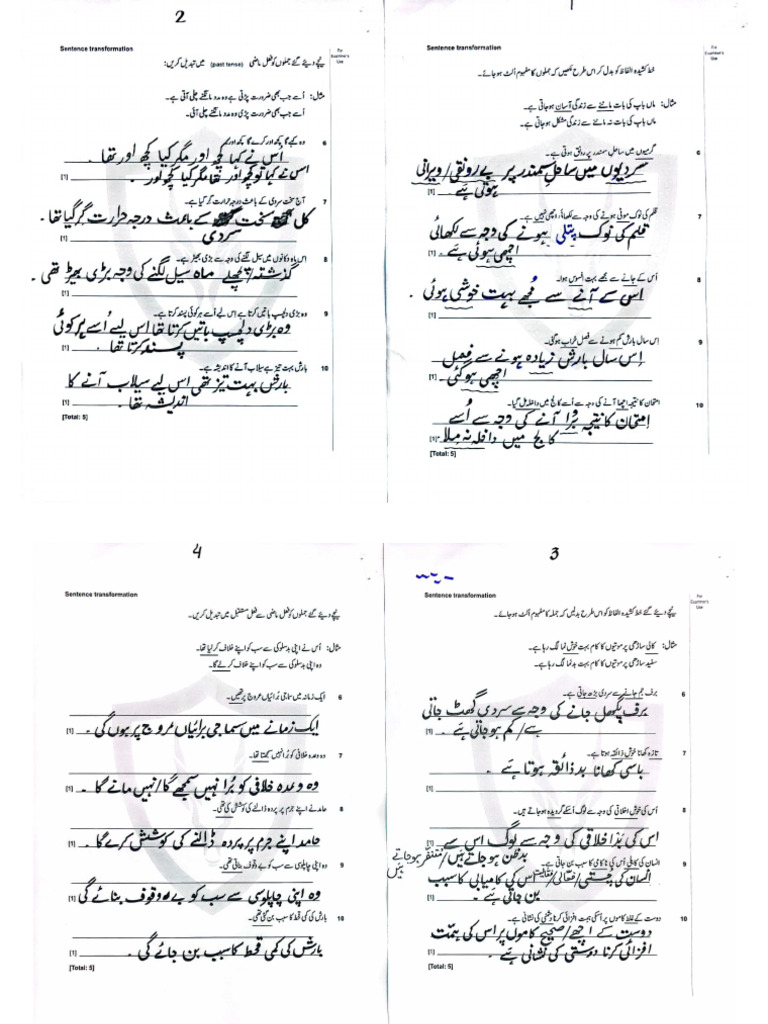 1
Sentence transformation
For
Examiner's
Use
خط کشیدہ الفاظ کو بدل کر اس طرح لکھیں کہ جملوں کا مفہوم الٹ ہو جائے۔
مثال: ماں باپ کی بات ماننے سے زندگی آسان ہو جاتی ہے۔
ماں باپ کی بات نہ ماننے سے زندگی مشکل ہو جاتی ہے۔
6 گرمیوں میں ساحل سمندر پر رونق ہوتی ہے۔
سردیوں میں ساحل سمندر پر بے رونقی/ویرانی
[1] ہوتی ہے۔
7 قلم کی نوک موٹی ہونے کی وجہ سے لکھائی اچھی نہیں ہے۔
قلم کی نوک پتلی ہونے کی وجہ سے لکھائی
[1] اچھی ہوئی ہے۔
8 اُس کے جانے سے مجھے بہت افسوس ہوا۔
اس کے آنے سے مُجھے بہت خوشی ہوئی۔
[1]
9 اس سال بارش کم ہونے سے فصل خراب ہوگئی۔
اِس سال بارش زیادہ ہونے سے فصل
[1] اچھی ہوگئی۔
10 امتحان کا نتیجہ اچھا آنے کی وجہ سے اُسے کالج میں داخلہ مل گیا۔
امتحان کا نتیجہ بُرا آنے کی وجہ سے اُسے
[1] کالج میں داخلہ نہ ملا
[Total: 5]
2
Sentence transformation
For
Examiner's
Use
نیچے دیئے گئے جملوں کو فعل ماضی (past tense) میں تبدیل کریں:
مثال: اُسے جب بھی ضرورت پڑتی ہے وہ مدد مانگنے چلی آتی ہے۔
اُسے جب بھی ضرورت پڑی وہ مدد مانگنے چلی آئی۔
6 وہ کہے گا کچھ اور کرے گا کچھ اور
اُس نے کہا کچھ اور مگر کیا کچھ اور تھا۔
[1] اس نے کہا تو کچھ اور تھا مگر کیا کچھ اور۔
7 آج سخت سردی کے باعث درجہ حرارت گر گیا ہے۔
کل سخت کے باعث درجہ حرارت گر گیا تھا۔
[1] سردی
8 اس ماہ دکانوں میں سیل لگنے کی وجہ سے بڑی بھیڑ ہے۔
گذشتہ/پچھلے ماہ سیل لگنے کی وجہ بڑی بھیڑ تھی۔
[1]
9 وہ بڑی دلچسپ باتیں کرتا ہے اس لیے اُسے ہر کوئی پسند کرتا ہے۔
وہ بڑی دلچسپ باتیں کرتا تھا اس لیے اُسے ہر کوئی
[1] پسند کرتا تھا۔
10 بارش بہت تیز ہے سیلاب آنے کا اندیشہ ہے۔
بارش بہت تیز تھی اس لیے سیلاب آنے کا
[1] اندیشہ تھا۔
[Total: 5]
3
Sentence transformation
For
Examiner's
Use
نیچے دیئے گئے خط کشیدہ الفاظ کو اس طرح بدلیں کہ جملہ کا مفہوم اُلٹ ہو جائے۔
مثال: کالی ساڑھی پر موتیوں کا کام بہت خوش نما لگ رہا ہے۔
سفید ساڑھی پر موتیوں کا کام بہت بدنما لگ رہا ہے۔
6 برف جم جانے سے سردی بڑھ جاتی ہے۔
برف پگھل جانے کی وجہ سے سردی گھٹ جاتی
[1] ہے/کم ہو جاتی ہے۔
7 تازہ کھانا خوش ذائقہ ہوتا ہے۔
باسی کھانا بد ذائقہ ہوتا ہے۔
[1]
8 اُس کی خوش اخلاقی کی وجہ سے لوگ اُسکے گرویدہ ہو جاتے ہیں۔
اس کی بد اخلاقی کی وجہ سے لوگ اس سے
[1] بدظن ہو جاتے ہیں/متنفر ہو جاتے ہیں
9 انسان کی کاہلی اُس کی ناکامی کا سبب بن جاتی ہے۔
انسان کی چُستی/فعالی/ اُس کی کامیابی کا سبب
[1] بن جاتی ہے۔
10 دوست کے غلط کاموں پر اُسکی ہمت افزائی کرنا دشمنی کی نشانی ہے۔
دوست کے اچھے/صحیح کاموں پر اس کی ہمّت
[1] افزائی کرنا دوستی کی نشانی ہے۔
[Total: 5]
4
Sentence transformation
نیچے دیئے گئے جملوں کو فعل ماضی سے فعل مستقبل میں تبدیل کریں۔
مثال: اُس نے اپنی بدسلوکی سے سب کو اپنے خلاف کر لیا تھا۔
وہ اپنی بدسلوکی سے سب کو اپنے خلاف کر لے گا۔
6 ایک زمانہ میں سماجی بُرائیاں عروج پر تھیں۔
ایک زمانے میں سماجی برائیاں عروج پر ہوں گی۔
[1]
7 وہ وعدہ خلافی کو بُرا نہیں سمجھتا تھا۔
وہ وعدہ خلافی کو بُرا نہیں سمجھے گا/نہیں مانے گا۔
[1]
8 حامد نے اپنے جرم پر پردہ ڈالنے کی کوشش کی تھی۔
حامد اپنے جرم پر پردہ ڈالنے کی کوشش کرے گا۔
[1]
9 وہ اپنی چاپلوسی سے سب کو بے وقوف بناتی تھی۔
وہ اپنی چاپلوسی سے سب کو بے وقوف بنائے گی
[1]
10 بارش کی کمی قحط کا سبب بن گئی تھی۔
بارش کی کمی قحط کا سبب بن جائے گی۔
[1]
[Total: 5]